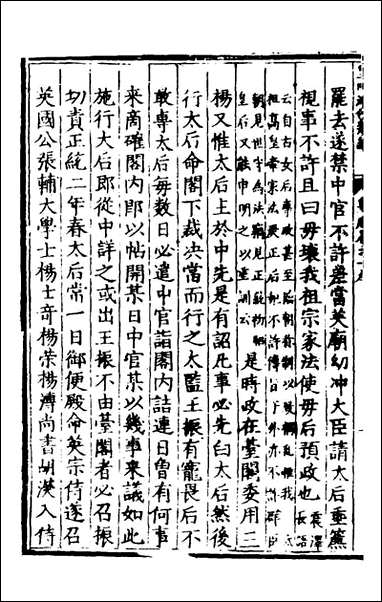 罷去遂禁中官不許與當英廟幼冲大臣請太后垂簾
視事不許且曰毋壞我祖宗家法使毋后預政也震澤長語
是時政在臺閣委用三
楊又惟太后上於中先是有詔凡事必先白太后然後
行太后命閣下裁决當而行之太監王振有寵畏后不
敢專太后每數日必遣中官詣閣内詰連日曾有何事
来商確閣内即以帖開某日中官某以幾事来議如此
施行大后即從中詳之或出王振不由臺閣者必召振
切責正統二年春太后常一日御便殿命英宗侍遂召
英國公張輔大學士楊士竒楊荣楊溥尚書胡濙入侍